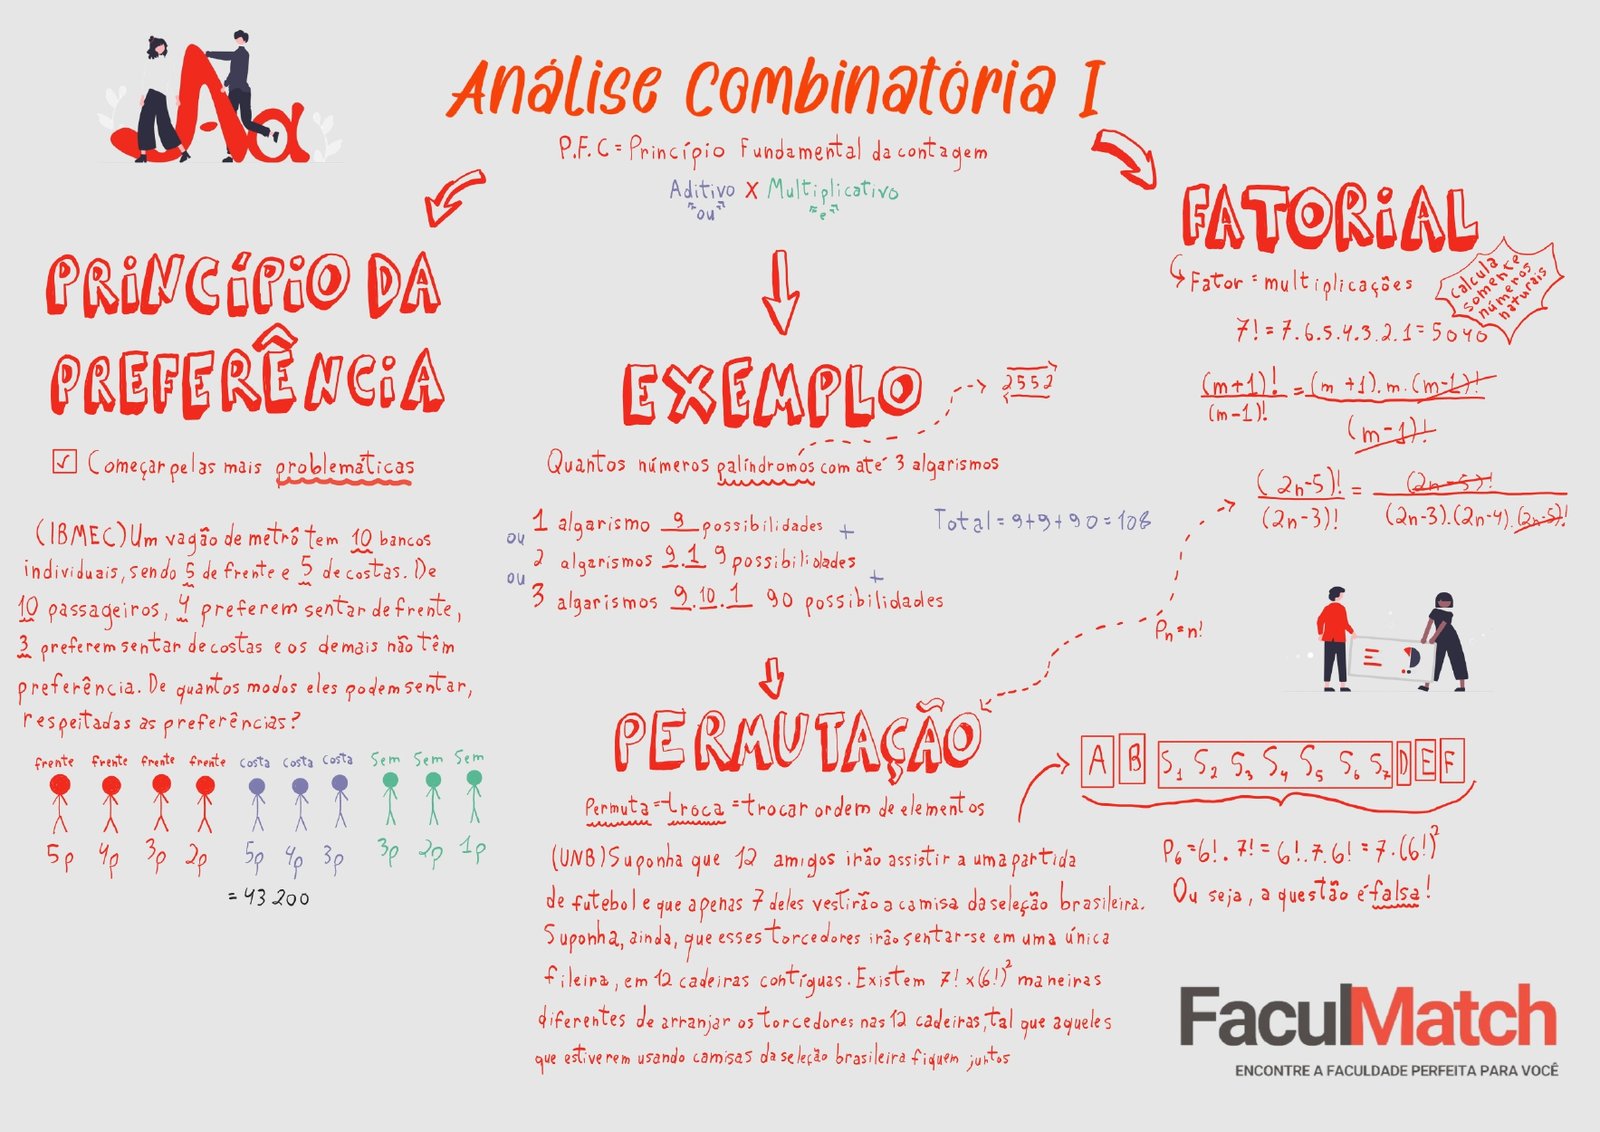 Análise Combinatória I
P.F.C = Princípio Fundamental da contagem
Aditivo X Multiplicativo
"ou" "e"
PRINCÍPIO DA
PREFERÊNCIA
Começar pelas mais problemáticas
(IBMEC) Um vagão de metrô tem 10 bancos
individuais, sendo 5 de frente e 5 de costas. De
10 passageiros, 4 preferem sentar de frente,
3 preferem sentar de costas e os demais não têm
preferência. De quantos modos eles podem sentar,
respeitadas as preferências?
frente frente frente frente costa costa costa Sem Sem Sem
5p 4p 3p 2p 5p 4p 3p 3p 2p 1p
= 43200
EXEMPLO
2552
Quantos números palíndromos com até 3 algarismos
1 algarismo 9 possibilidades +
ou
2 algarismos 9.1 9 possibilidades
ou +
3 algarismos 9.10.1 90 possibilidades
Total = 9+9+90 = 108
PERMUTAÇÃO
Permuta = troca = trocar ordem de elementos
(UNB) Suponha que 12 amigos irão assistir a uma partida
de futebol e que apenas 7 deles vestirão a camisa da seleção brasileira.
Suponha, ainda, que esses torcedores irão sentar-se em uma única
fileira, em 12 cadeiras contíguas. Existem 7! x (6!)² maneiras
diferentes de arranjar os torcedores nas 12 cadeiras, tal que aqueles
que estiverem usando camisas da seleção brasileira fiquem juntos
FATORIAL
Fator = multiplicações
Calcula
somente
números
naturais
7! = 7.6.5.4.3.2.1 = 5040
(m+1)! = (m+1).m.(m-1)!
(m-1)! (m-1)!
(2n-5)! = (2n-5)!
(2n-3)! (2n-3).(2n-4).(2n-5)!
Pn = n!
A B S1 S2 S3 S4 S5 S6 S7 D E F
P6 = 6!.7! = 6!.7.6! = 7.(6!)²
Ou seja, a questão é falsa!
FaculMatch
ENCONTRE A FACULDADE PERFEITA PARA VOCÊ